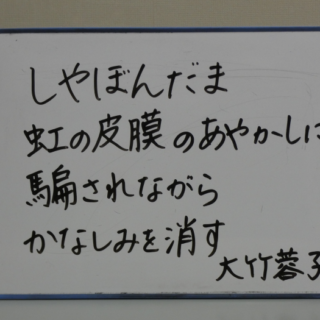 しやぼんだま
虹の皮膜のあやかしに
騙されながら
かなしみを消す
大竹蓉子